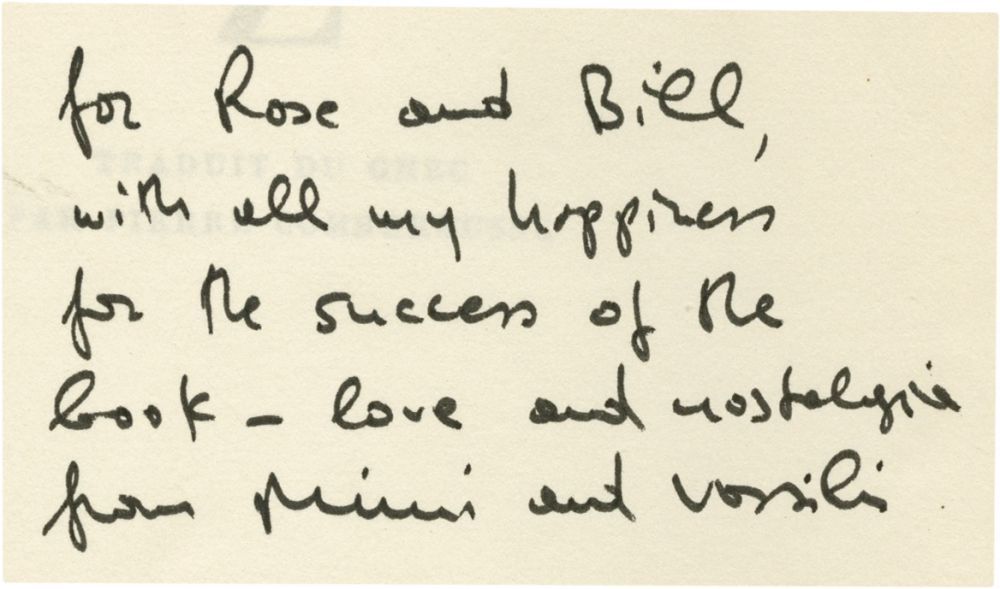 for Rose and Bill,
TRADUIT DU GREC
with all my happiness
PAR PIERRE
for the success of the
book – love and nostalgia
from Mimi and Vassili